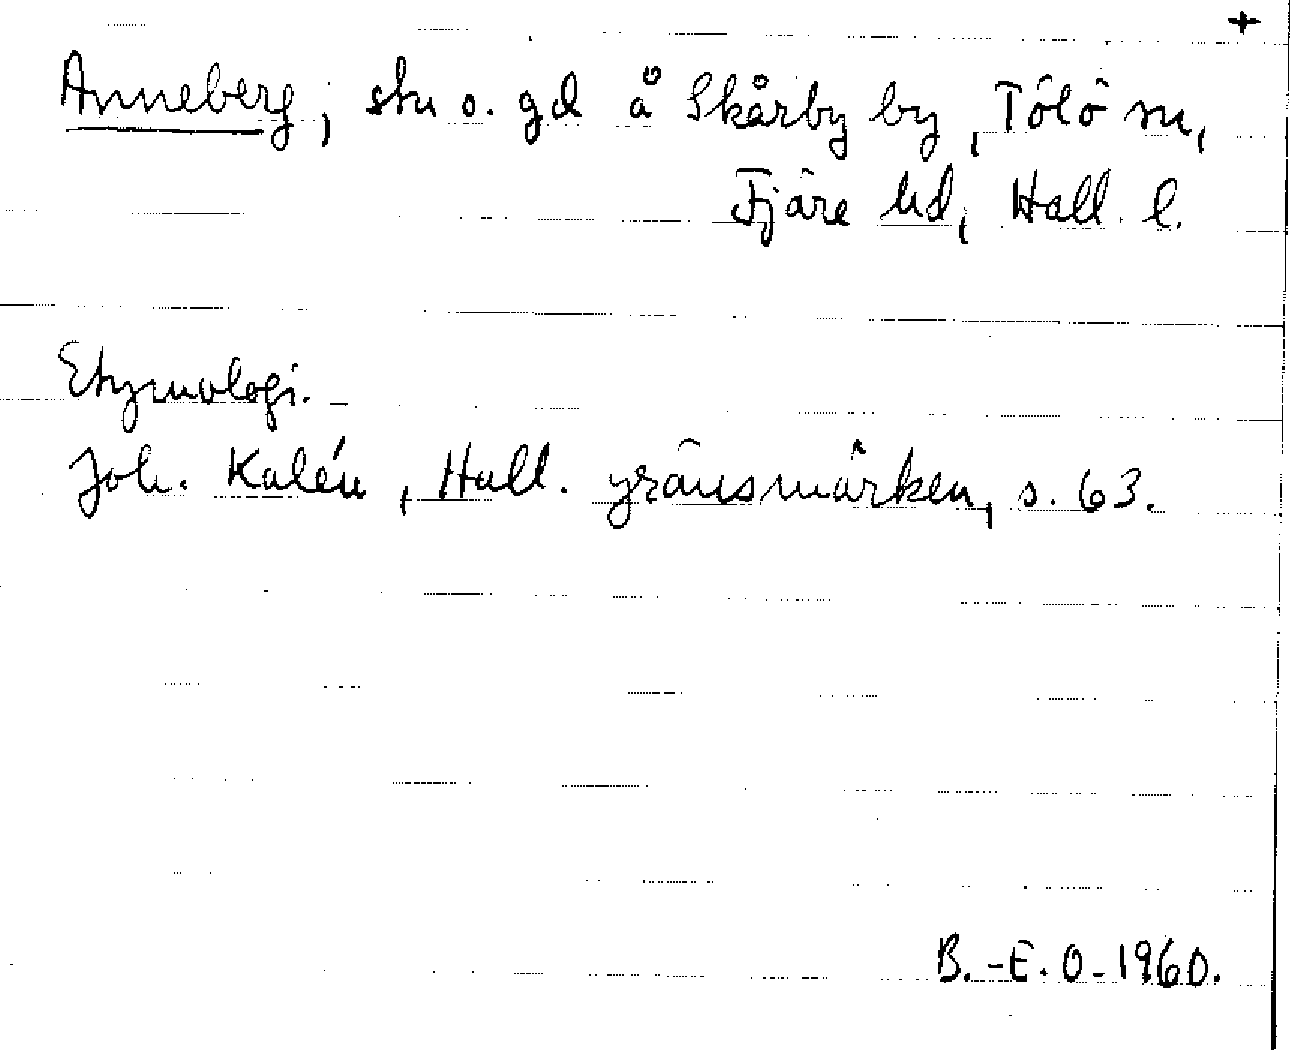 +
Anneberg, stn o. gd å Skårby by, Tölö sn,
Fjäre hd, Hall. l.
Etymologi. –
Joh. Kalén, Hall. gränsmärken, s. 63.
B.-E. O-1960.